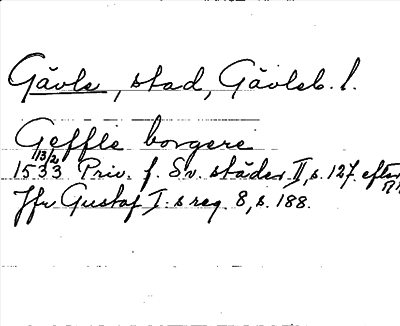 Gävle, stad, Gävleb. l.
Geffle borgere
13/2
1533 Priv. f. Sv. städer II, s. 127. efter
Jfr Gustaf I:s reg 8, s. 188.